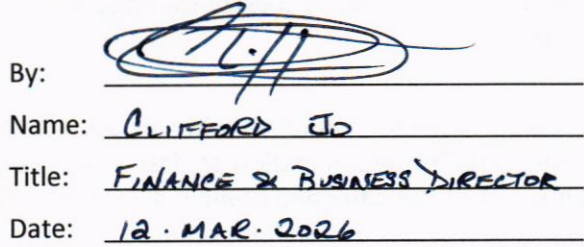 By:
Name: CLIFFORD JO
Title: FINANCE & BUSINESS DIRECTOR
Date: 12 . MAR . 2026